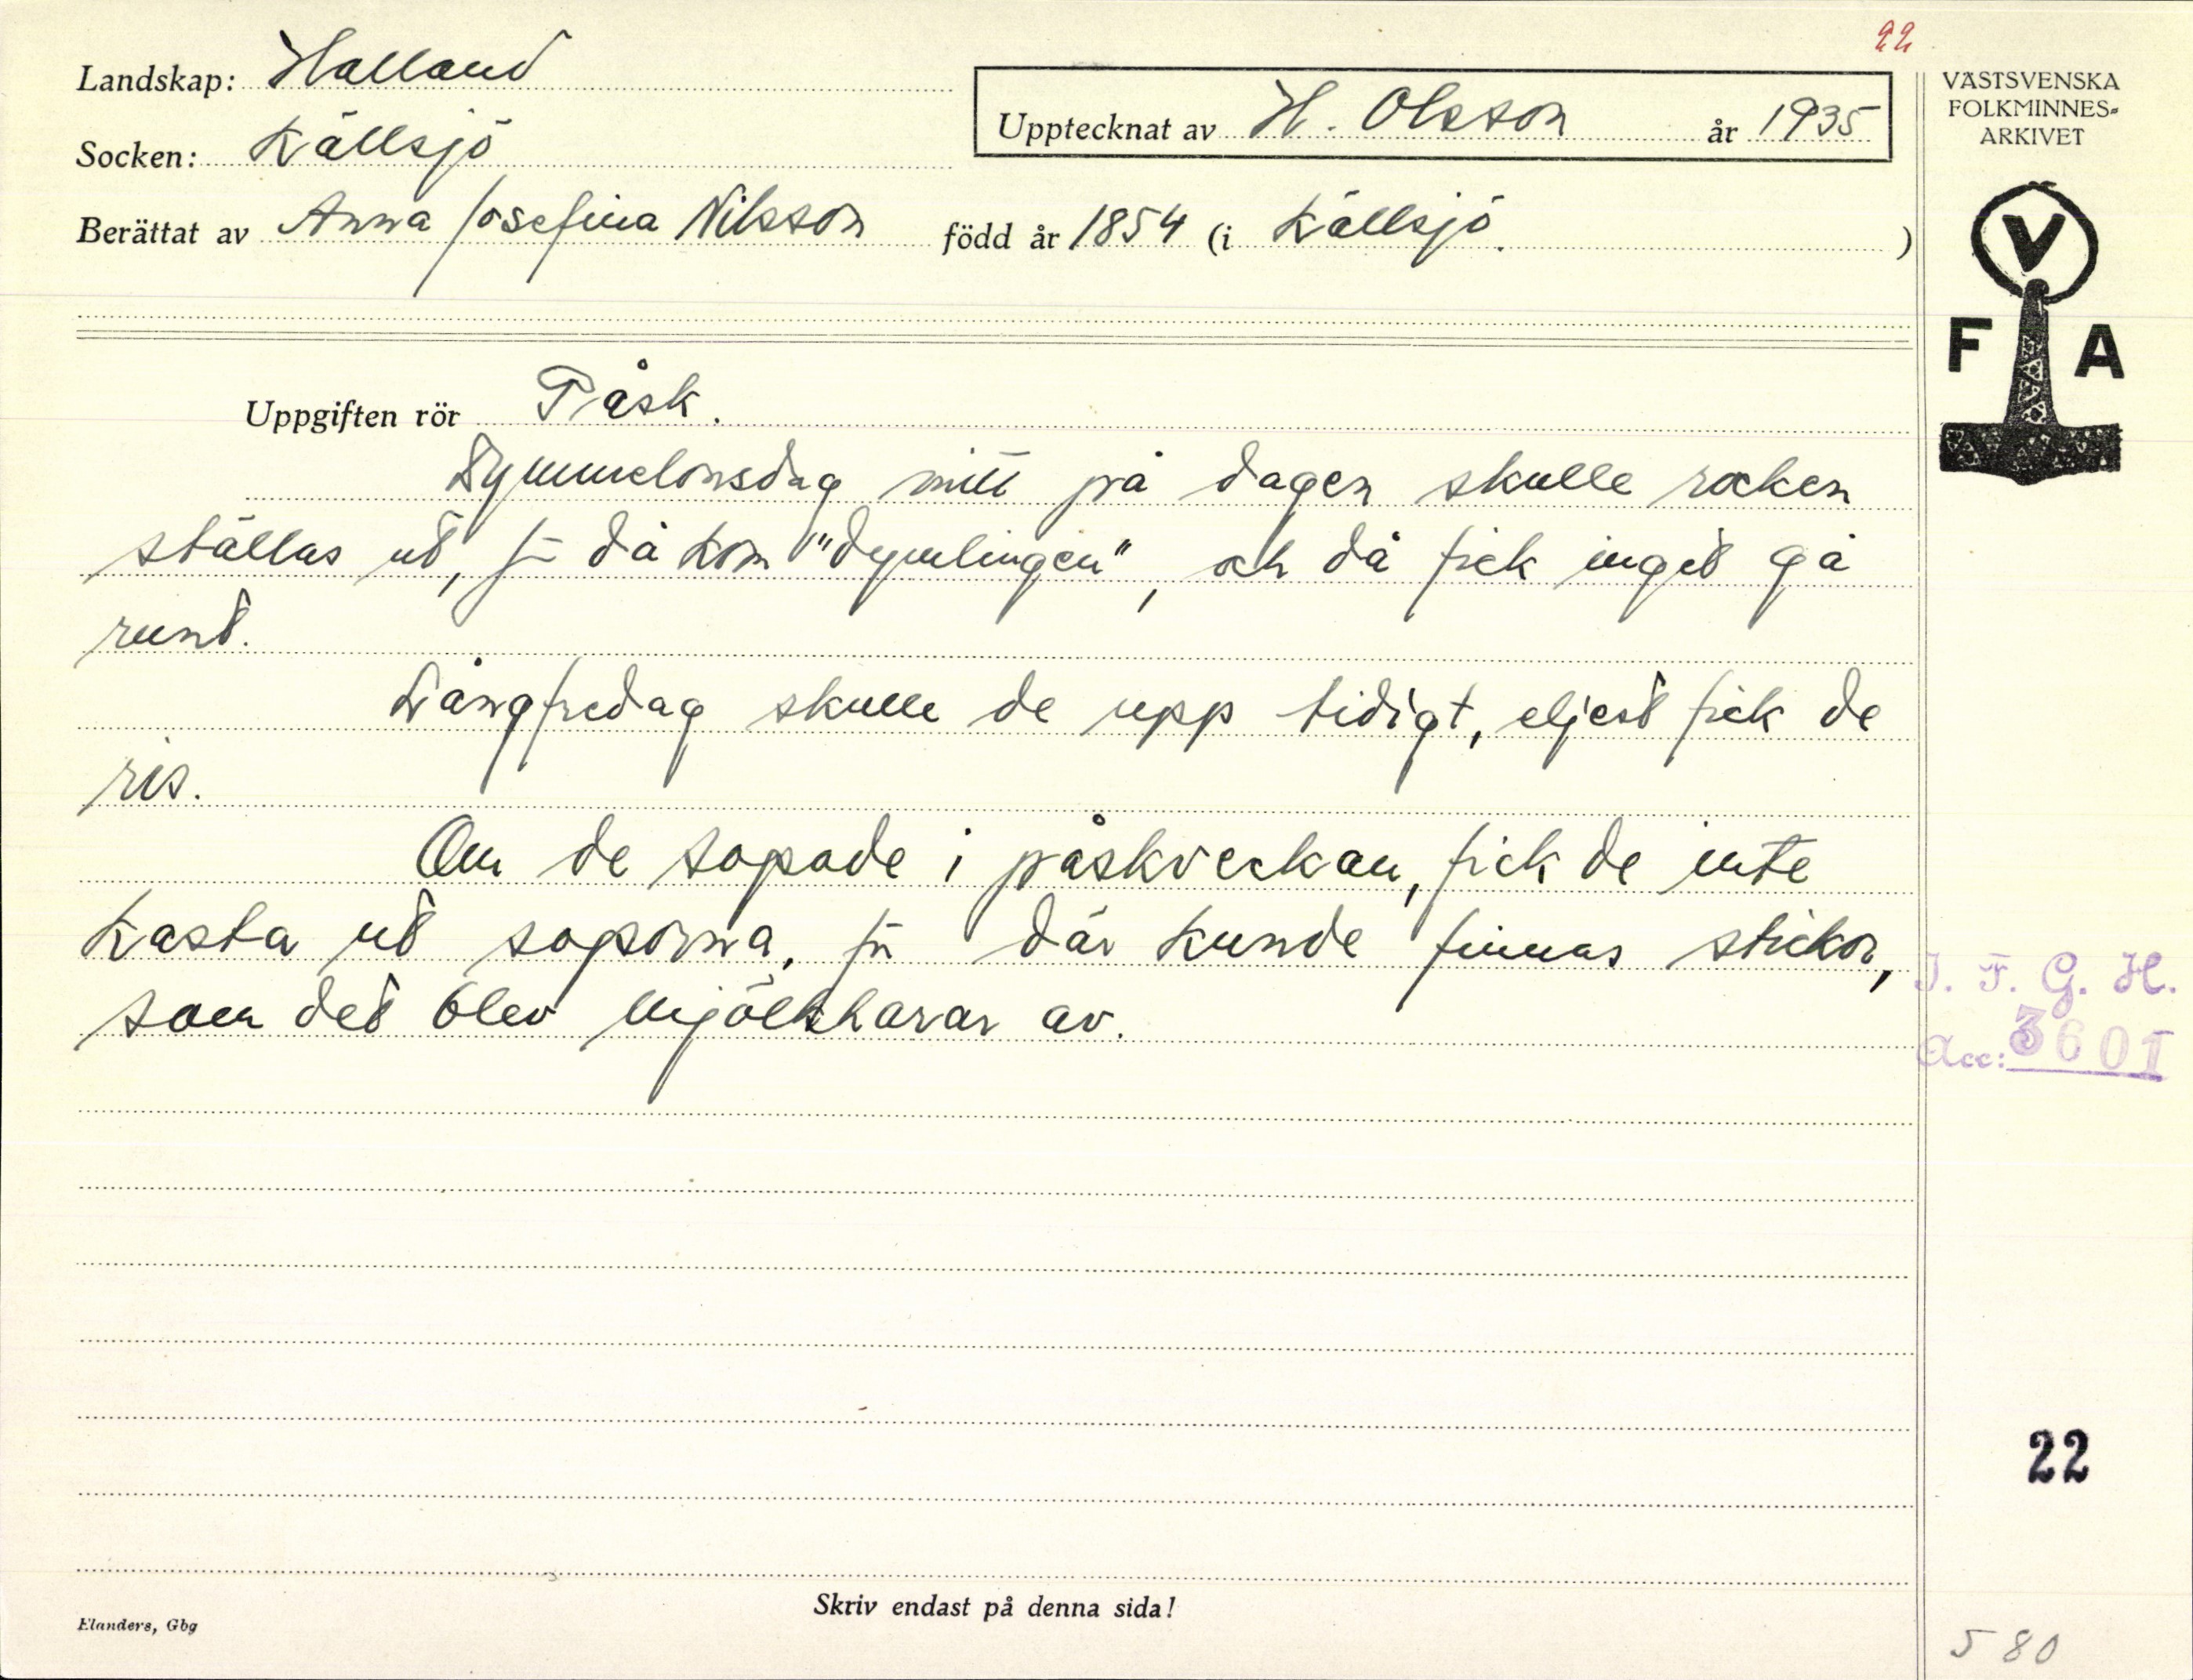 22
Landskap: Halland
VÄSTSVENSKA
FOLKMINNES-
ARKIVET
Upptecknat av H. Olsson år 1935
Socken: Källsjö
Berättat av Anna Josefina Nilsson född år 1854 (i Källsjö. )
V
F A
Uppgiften rör Påsk.
Dymmelonsdag mitt på dagen skulle rocken
ställas ut, för då kom "dymlingen", och då fick inget gå
runt.
Långfredag skulle de upp tidigt, eljest fick de
ris.
Om de sopade i påskveckan, fick de inte
kasta ut soporna, för där kunde finnas stickor,
som det blev mjölkharar av.
I. F. G. H.
Acc: 3601
22
Skriv endast på denna sida!
Elanders, Gbg
580